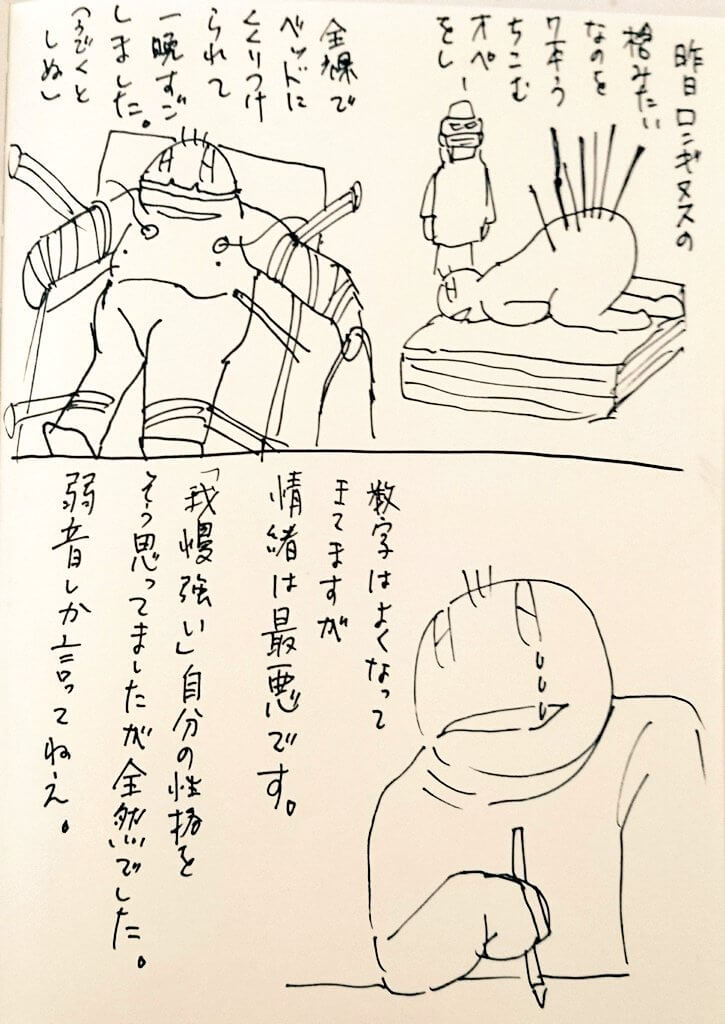 昨日ロンギヌスの
槍みたい
なのを
7本う
ちこむ
オペ
をし
全裸で
ベッドに
くくりつけ
られて
一晩すご
しました。
(うごくと
しぬ)
数字はよくなって
きてますが
情緒は最悪です。
「我慢強い」自分の性格を
そう思ってましたが全然でした。
弱音しか言ってねえ。